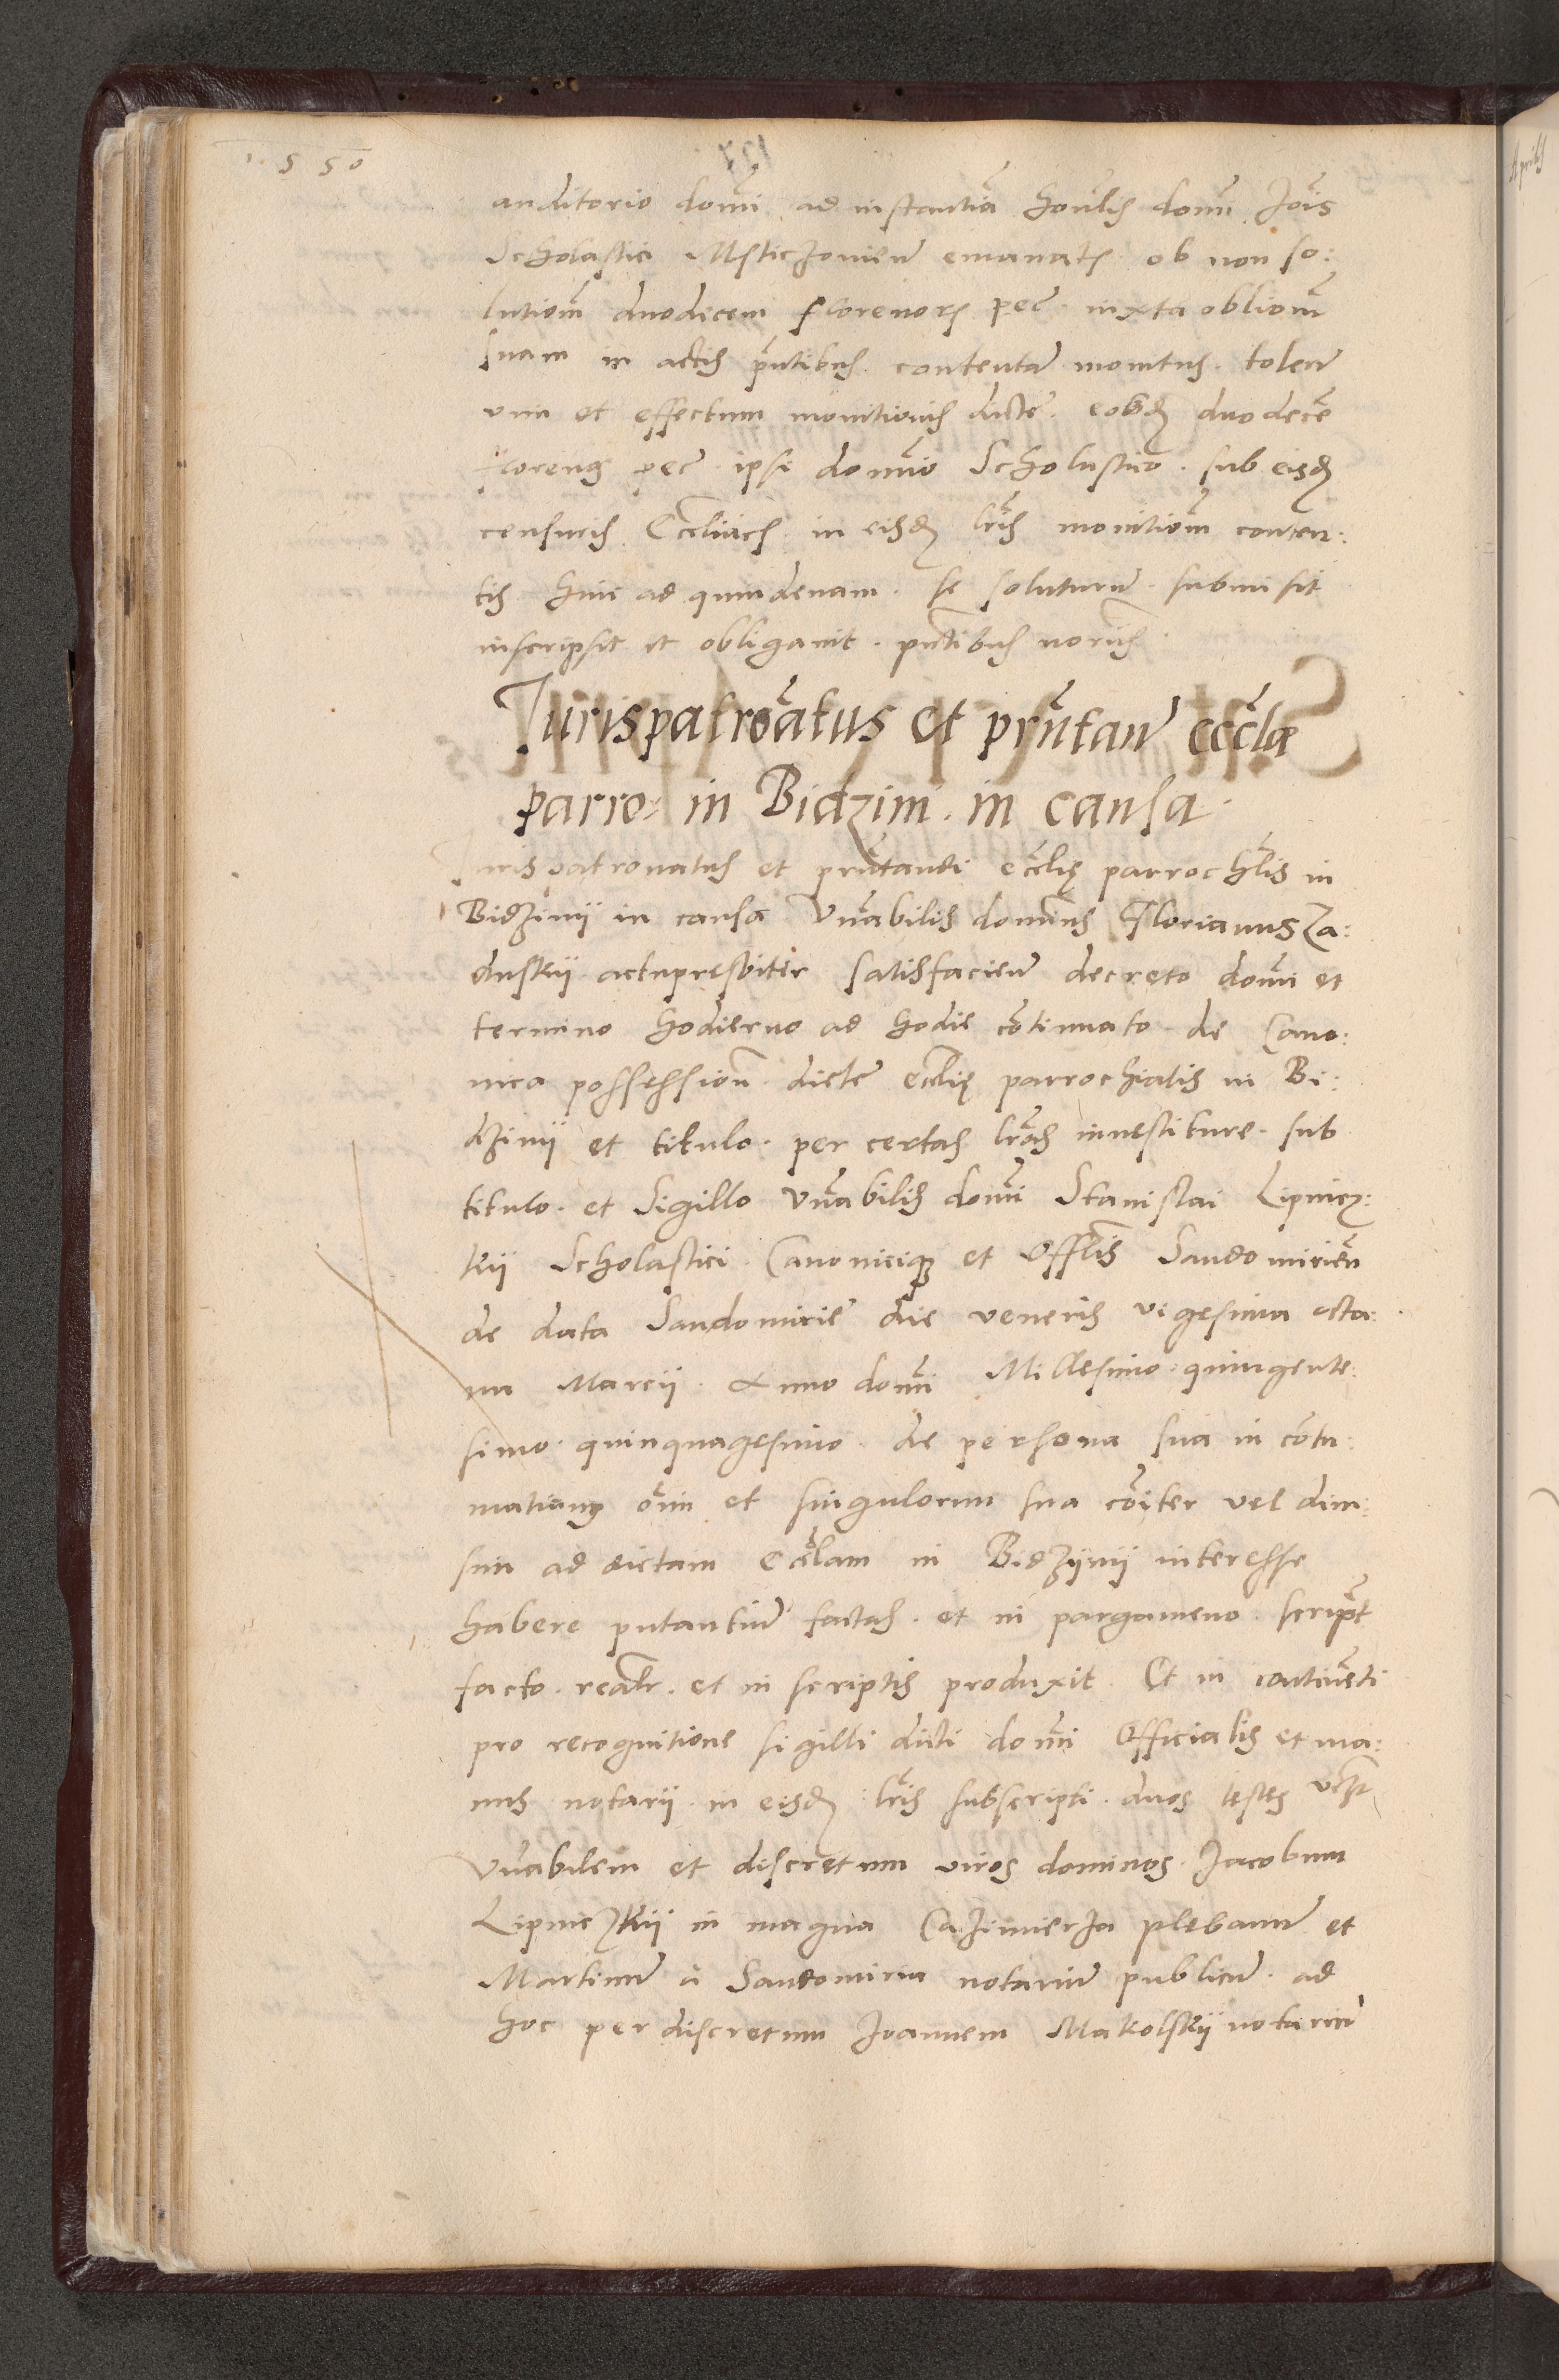 1550
auditorio domi ad instantia honlis domi Jois
Scholastici Msticzovien emanatis ob non so:
lutiom duodecem florenorz pec iuxta obliom
suam in actis pntibus contentam monitus tolen
vim et effectum monitionis dicte eosdz duodece
florenos pec ipsi domino Scholastico sub eisdz
censuris Eccliacis in eisdz lris monitiom conten:
tis hinc ad quindenam se soluturum submisit
inscripsit et obligavit pntibus noriis
Jurispatroatus et prntan eccla
parro: in Bidzim in causa
Juris patronatus et prntandi ecclie parrochlis in
Bidzinii in causa Vnabilis dominus Florianus Za:
duskii actupresbiter satisfacien decreto domi et
termino hodierno ad hodie cotinuato de Cano:
nica possession dicte ecclie parrochialis in Bi:
dzinii et titulo per certas lras investiture sub
titulo et Sigillo Vnabilis domi Stanislai Lipnicz:
kii Scholastici Canonicique et Offlis Sandomirien
de data Sandomirie die veneris vigesima octa:
va Marcii Anno domi Millesimo quingente:
simo quinquagesimo de persona sua in contu:
matiam oim et singulorum sua coiter vel divi:
sim ad dictam Ecclam in Bidzynii interesse
habere putantium factas et in pargameno script
facto realr et in scriptis produxit Et in continenti
pro recognitione sigilli dicti domi Officialis et ma:
nus notarii in eisdz lris subscripti duos testes
Vnabilem et discretum viros dominos Jacobum
Lipniczkii in magna Cazimierza plebanum et
Martinum a Sandomiria notarium publicum ad
hoc per discretum Joannem Makolskii notarium